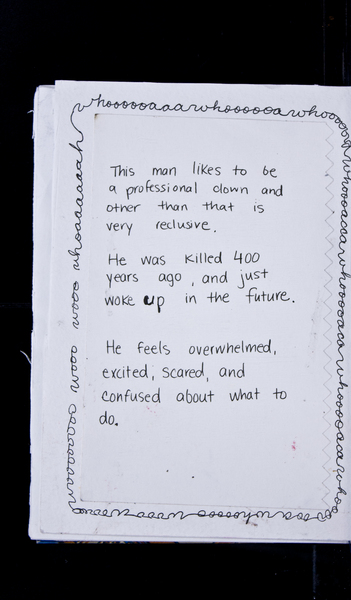 whoooooaaawhoooooawhooooo
This man likes to be
a professional clown and
other than that is
very reclusive.
He was killed 400
years ago, and just
woke up in the future.
He feels overwhelmed,
excited, scared, and
confused about what to
do.